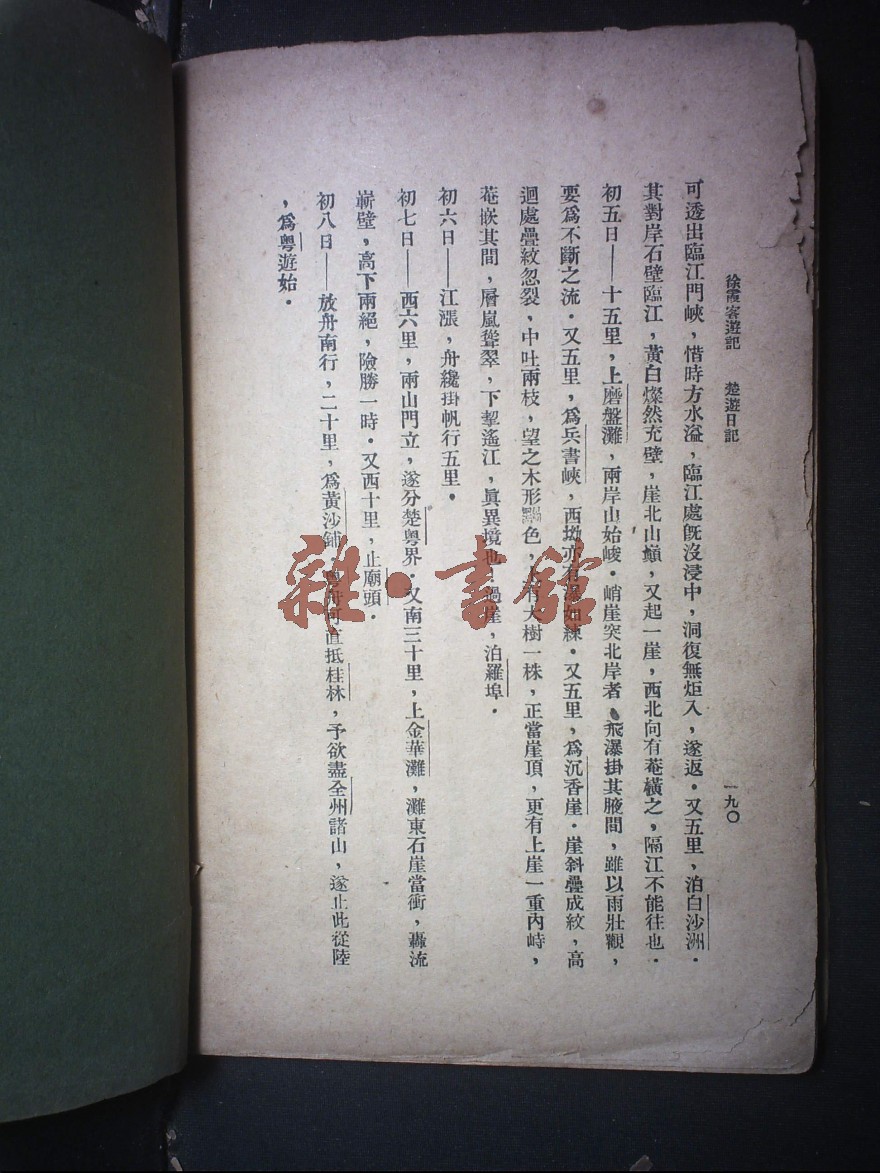 徐霞客遊記　楚遊日記
一九〇
可透出臨江門峽，惜時方水溢，臨江處旣沒浸中，洞復無炬入，遂返．又五里，泊白沙洲．
其對岸石壁臨江，黃白燦然充壁，崖北山巔，又起一崖，西北向有菴橫之，隔江不能往也．
初五日——十五里，上磨盤灘，兩岸山始峻．峭崖突北岸者，飛瀑掛其腋間，雖以雨壯觀，
要爲不斷之流．又五里，爲兵書峽，西坳亦有瀑如練．又五里，爲沉香崖．崖斜疊成紋，高
迴處疊紋忽裂，中吐兩枝，望之木形黯色，有大樹一株，正當崖頂，更有上崖一重內峙，
菴嵌其間，層嵐聳翠，下挈遙江，眞異境也．過崖，泊羅埠．
初六日——江漲，舟纔掛帆行五里．
初七日——西六里，兩山門立，遂分楚粤界．又南三十里，上金華灘，灘東石崖當衝，轟流
嶄壁，高下兩絕，險勝一時．又西十里，止廟頭．
初八日——放舟南行，二十里，爲黃沙鋪．舟可直抵桂林，予欲盡全州諸山，遂止此從陸
，爲粤遊始．
雜·書館